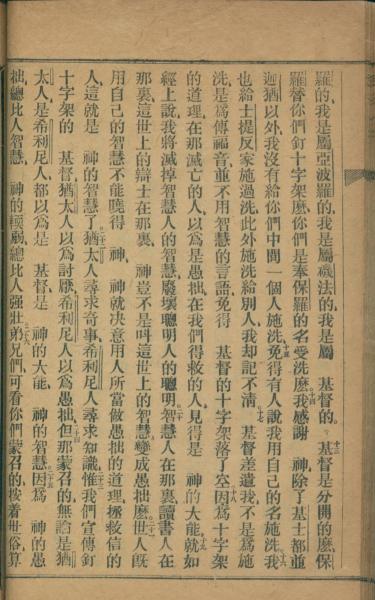 羅的、我是屬亞波羅的、我是屬磯法的、我是屬　基督的。十三基督是分開的麼、保
羅督你們釘十字架麼、你們是奉保羅的名受洗麼。十四我感謝　神、除了基士都並
迦猶以外、我沒有給你們中間一個人施洗、十五免得有人說、我用自己的名施洗。十六我
也給士提反家施過洗、此外施洗給別人、我却記不淸。十七　基督差遣我、不是爲施
洗、是爲傳福音、並不用智慧的言語、免得　基督的十字架落了空。十八因爲十字架
的道理、在那滅亡的人、以爲是愚拙、在我們得救的人、見得是　神的大能。十九就如
經上說、我將滅掉智慧人的智慧、廢壞聰明人的聰明。二十智慧人在那裏、讀書人在
那裏、這世上的辯士在那裏、　神豈不是呌這世上的智慧變成愚拙麼。二一世人既
用自己的智慧不能曉得　神、　神就決意用人所當做愚拙的道理、拯救信的
人、這就是　神的智慧了。二二猶太人尋求奇事、希利尼人尋求知識、二三惟我們宣傳釘
十字架的　基督、猶太人以爲討厭、希利尼人以爲愚拙、二四但那蒙召的、無論是猶
太人、是希利尼人、都以爲是　基督、是　神的大能、　神的智慧。二五因爲　神的愚
拙總比人智慧、　神的輭弱總比人强壯。二六弟兄們、可看你們蒙召的、按着世俗、算